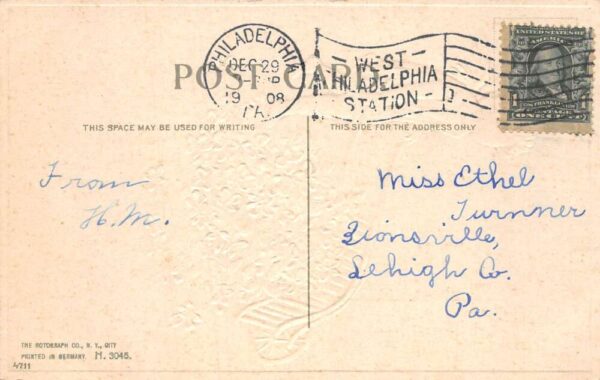 POST CARD
PHILADELPHIA
DEC 29
19 08
PA.
WEST
PHILADELPHIA
STATION
UNITED STATES OF
AMERICA
FRANKLIN
ONE CENT
THIS SPACE MAY BE USED FOR WRITING
THIS SIDE FOR THE ADDRESS ONLY
From
H.M.
Miss Ethel
Turnner
Zionsville,
Lehigh Co.
Pa.
THE ROTOGRAPH CO., N. Y., CITY
PRINTED IN GERMANY. N. 3045.
4711